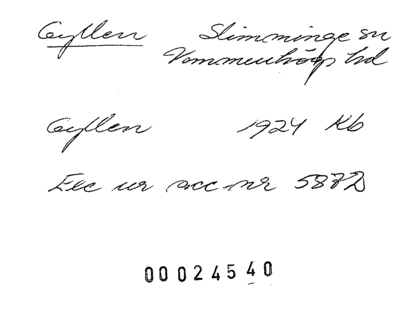 Gyllen Slimminge sn
Vemmenhögs hd
Gyllen 1924 Kb
Exc ur acc nr 587D
00024540